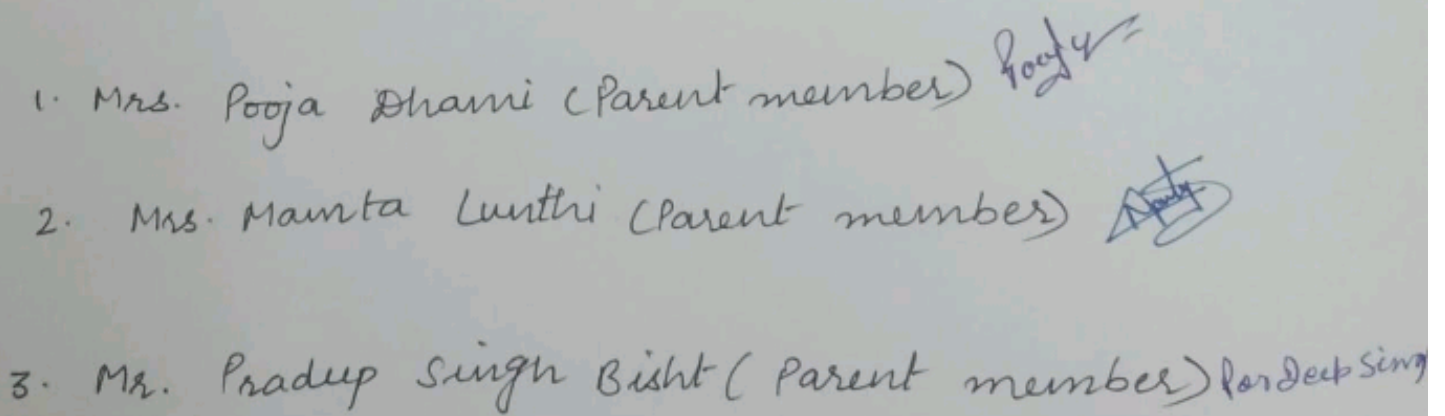 1. Mrs. Pooja Dhami (Parent member) Pooja
2. Mrs. Mamta Lunthi (Parent member)
3. Mr. Pradeep Singh Bisht (Parent member) Pardeep Sing